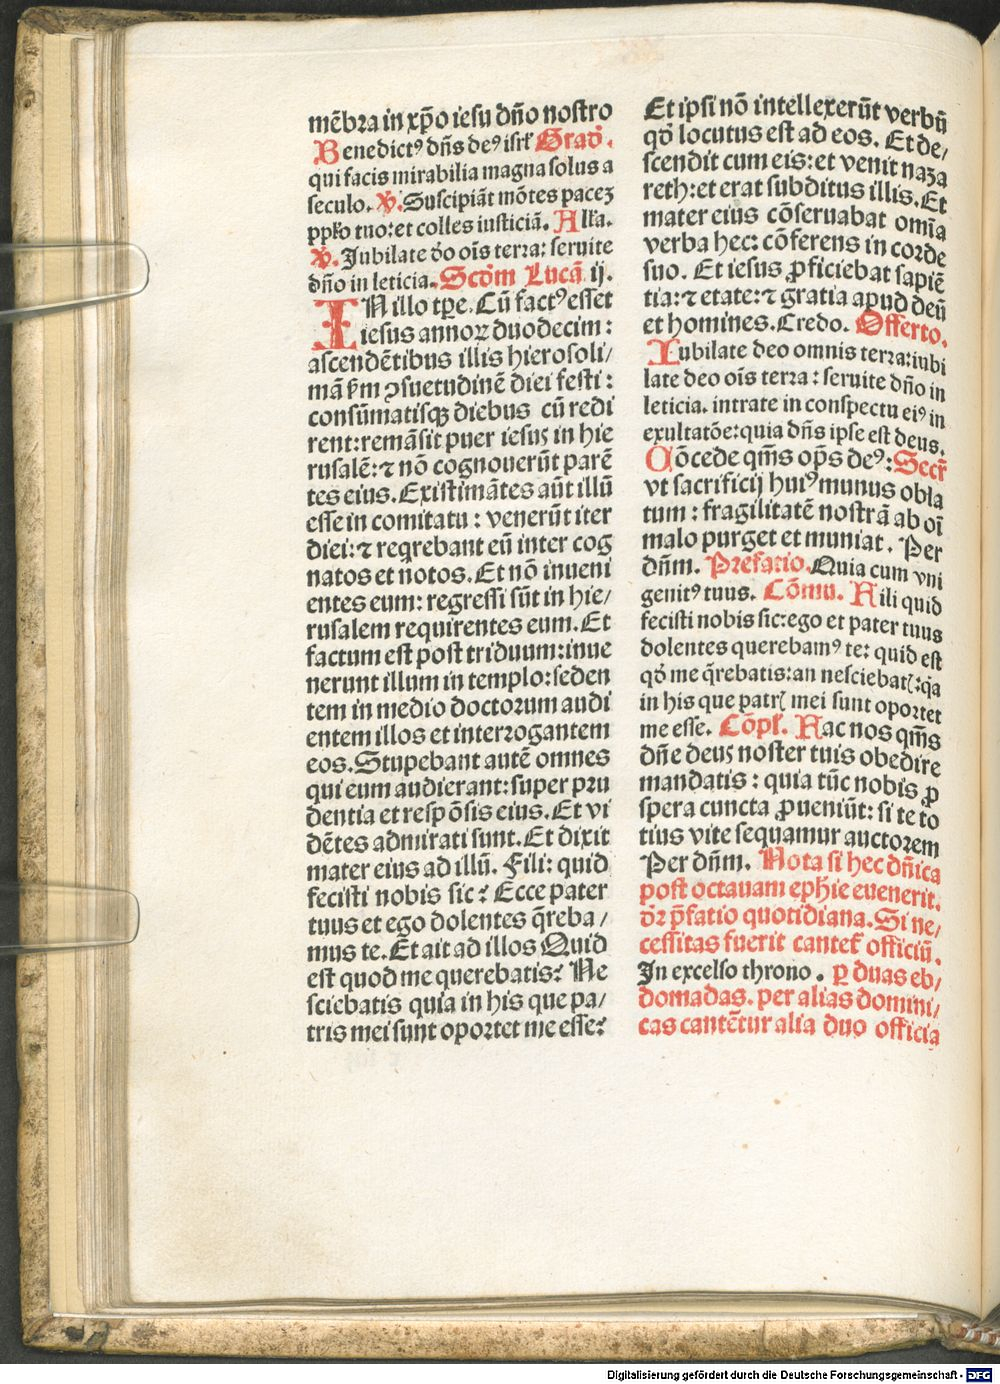 mēbra in xp̄o iesu dn̄o nostro
Benedictꝰ dn̄s deꝰ isrl̄ Grad̄.
qui facis mirabilia magna solus a
seculo. ℣. Suscipiāt mōtes pacez
ppl̄o tuo: et colles iusticiā. All̄a.
℣. Jubilate d̄o oīs terra: seruite
dn̄o in leticia. Scd̄m Lucā ij.
IN illo tp̄e. Cū factꝰ esset
iesus annoꝝ duodecim:
ascendētibus illis hierosoli/
mā ẜm ꝯsuetudinē diei festi:
consūmatisqꝫ diebus cū redi
rent: remāsit puer iesus in hie
rusalē: ⁊ nō cognouerūt parē
tes eius. Existimātes aūt illū
esse in comitatu: venerūt iter
diei: ⁊ reqrebant eū inter cog
natos et notos. Et nō inueni
entes eum: regressi sūt in hie/
rusalem requirentes eum. Et
factum est post triduum: inue
nerunt illum in templo: seden
tem in medio doctorum audi
entem illos et interrogantem
eos. Stupebant autē omnes
qui eum audierant: super pru
dentia et respōsis eius. Et vi
dētes admirati sunt. Et dixit
mater eius ad illū. Fili: quid
fecisti nobis sic? Ecce pater
tuus et ego dolentes q̄reba/
mus te. Et ait ad illos Quid
est quod me querebatis? Ne
sciebatis quia in his que pa/
tris mei sunt oportet me esse?
Et ipsi nō intellexerūt verbū
qd̄ locutus est ad eos. Et de/
scendit cum eis: et venit naza
reth: et erat subditus illis. Et
mater eius cōseruabat omīa
verba hec: cōferens in corde
suo. Et iesus ꝓficiebat sapiē
tia: ⁊ etate: ⁊ gratia apud deū
et homines. Credo. Offerto.
Iubilate deo omnis terra: iubi
late deo oīs terra: seruite dn̄o in
leticia. intrate in conspectu eiꝰ in
exultatōe: quia dn̄s ipse est deus.
Cōcede qm̄s op̄s deꝰ: Secr̄
vt sacrificij huiꝰ munus obla
tum: fragilitatē nostrā ab oī
malo purget et muniat. Per
dn̄m. Prefatio. Quia cum vni
genitꝰ tuus. Cōmu. Fili quid
fecisti nobis sic: ego et pater tuus
dolentes querebamꝰ te: quid est
qd̄ me q̄rebatis: an nesciebatꝭ: qa
in his que patrꝭ mei sunt oportet
me esse. Cōpl̄. Fac nos qm̄s
dn̄e deus noster tuis obedire
mandatis: quia tūc nobis ꝓ
spera cuncta ꝓueniūt: si te to
tius vite sequamur auctorem
Per dn̄m. Nota si hec dn̄ica
post octauam eph̄ie euenerit.
dr̄ p̄fatio quotidiana. Si ne/
cessitas fuerit cantet̄ officiū.
In excelso throno. ꝑ duas eb/
domadas. per alias domini/
cas cantētur alia duo officia
Digitalisierung gefördert durch die Deutsche Forschungsgemeinschaft - DFG